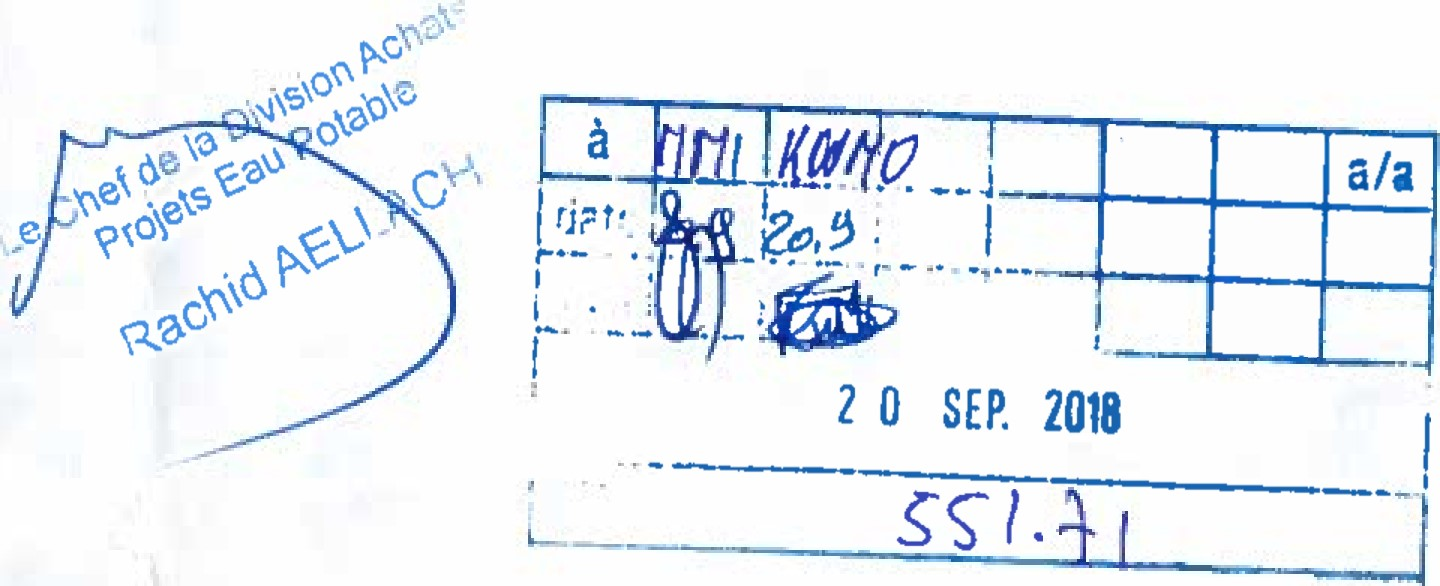 Le Chef de la Division Achats
Projets Eau Potable
Rachid AELLACH
à MMI a/a
date 20.9
20 SEP. 2018
551.71